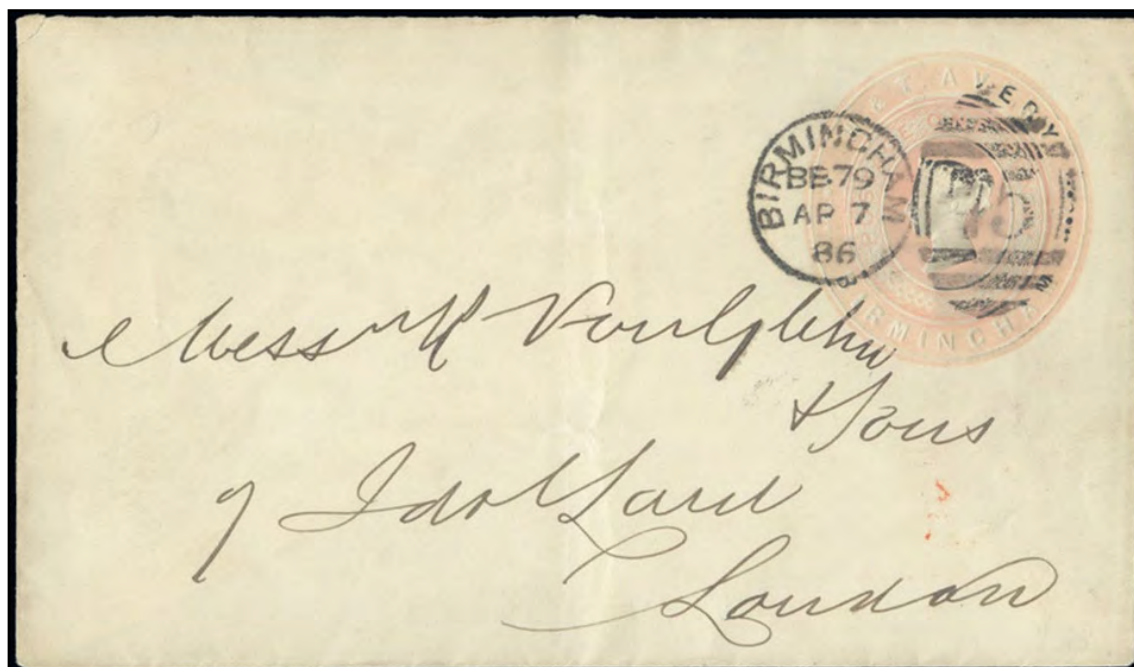 & T. AVERY
BIRMINGHAM
BIRMINGHAM
BB79
AP 7
86
75
Mess
& Sons
9 Idol Lane
London